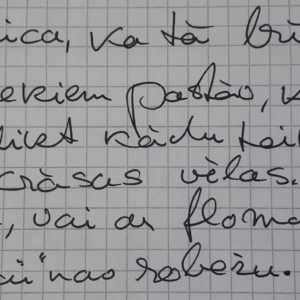 ica, ka tā brī
ekiem pastāv, k
likt kādu tei
crāsas vēlas.
, vai ar floma
ai" nav robežu.